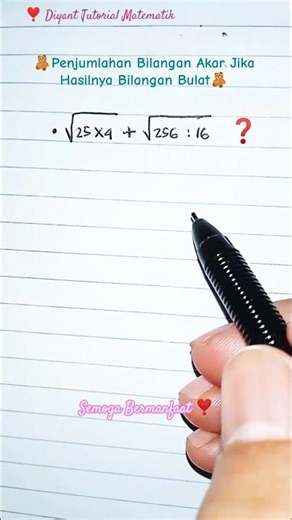 ❣️ Diyant Tutorial Matematik
🧸Penjumlahan Bilangan Akar Jika
Hasilnya Bilangan Bulat🧸
• √25×4 + √256 : 16 ❓
Semoga Bermanfaat ❣️